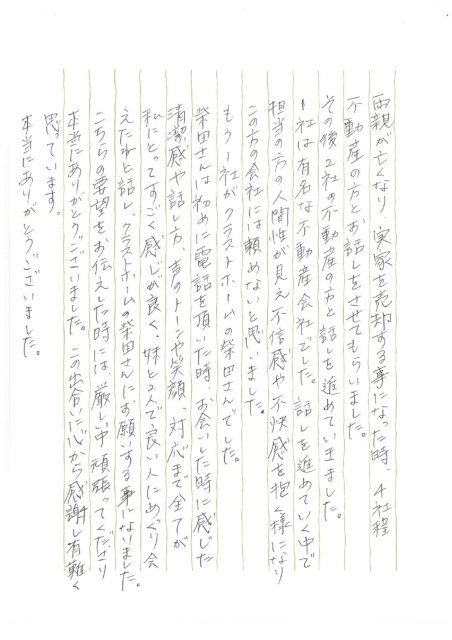 両親が亡くなり、実家を売却する事になった時、4社程
不動産の方とお話しをさせてもらいました。
その後2社の不動産の方と話しを進めていきました。
1社は有名な不動産会社でした。話しを進めていく中で
担当の方の人間性が見え不信感や不快感を抱く様になり
この方の会社には頼めないと思いました。
もう1社がクラストホームの柴田さんでした。
柴田さんは初めに電話を頂いた時、お会いした時に感じた
清潔感や話し方、声のトーンや笑顔、対応まで全てが
私にとってすごく感じが良く、妹と2人で良い人にめぐり会
えたねと話し、クラストホームの柴田さんにお願する事になりました。
こちらの要望をお伝えした時には、厳しい中頑張ってくださり
本当にありがとうございました。この出合いに心から感謝し有難く
思ています。
本当にありがとうございました。